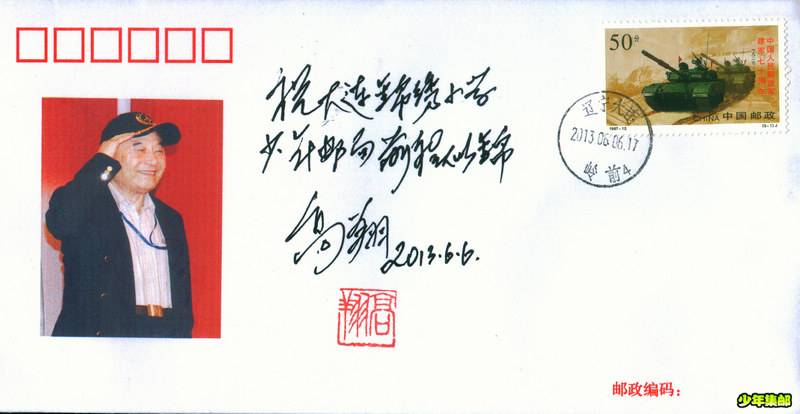 祝大连锦绣小学
少年邮局前程似锦
高翔
2013.6.6.
高翔
50分
中国人民解放军
建军七十周年
CHINA 中国邮政
辽宁大连
2013.06.06.17
前4
邮政编码：
少年集邮